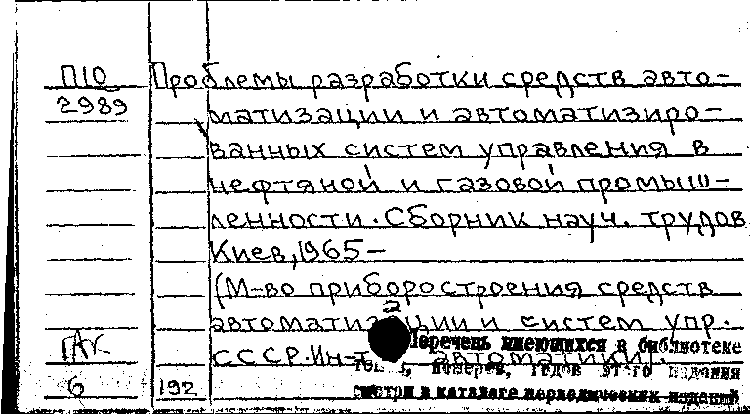 П10
2989
Проблемы разработки средств авто-
матизации и автоматизиро-
ванных систем управления в
нефтяной и газовой промыш-
ленности. Сборник науч. трудов
Киев, 1965-
(М-во приборостроения средств
автоматизации и систем упр.
СССР. Ин-т автоматики).
Перечень имеющихся в библиотеке
томов, номеров, годов этого издания
смотри в каталоге периодических изданий
6
192